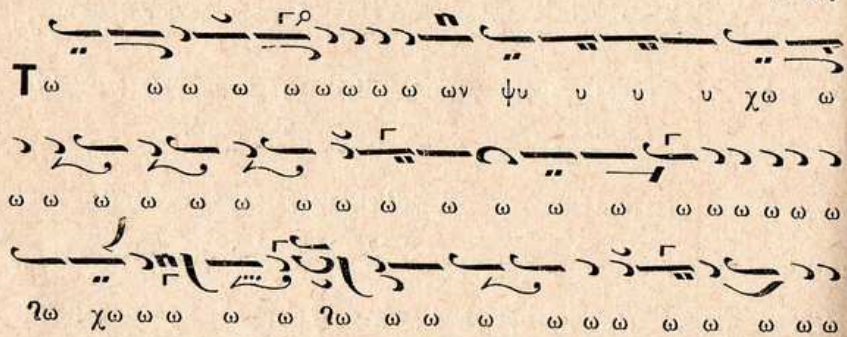 Τω ω ω ω ω ω ω ω ω ων ψυ υ υ υ χω ω
ω ω ω ω ω ω ω ω ω ω ω ω ω ω ω ω ω ω ω
χω ω ω ω ω ω ω ω ω ω ω ω ω ω ω